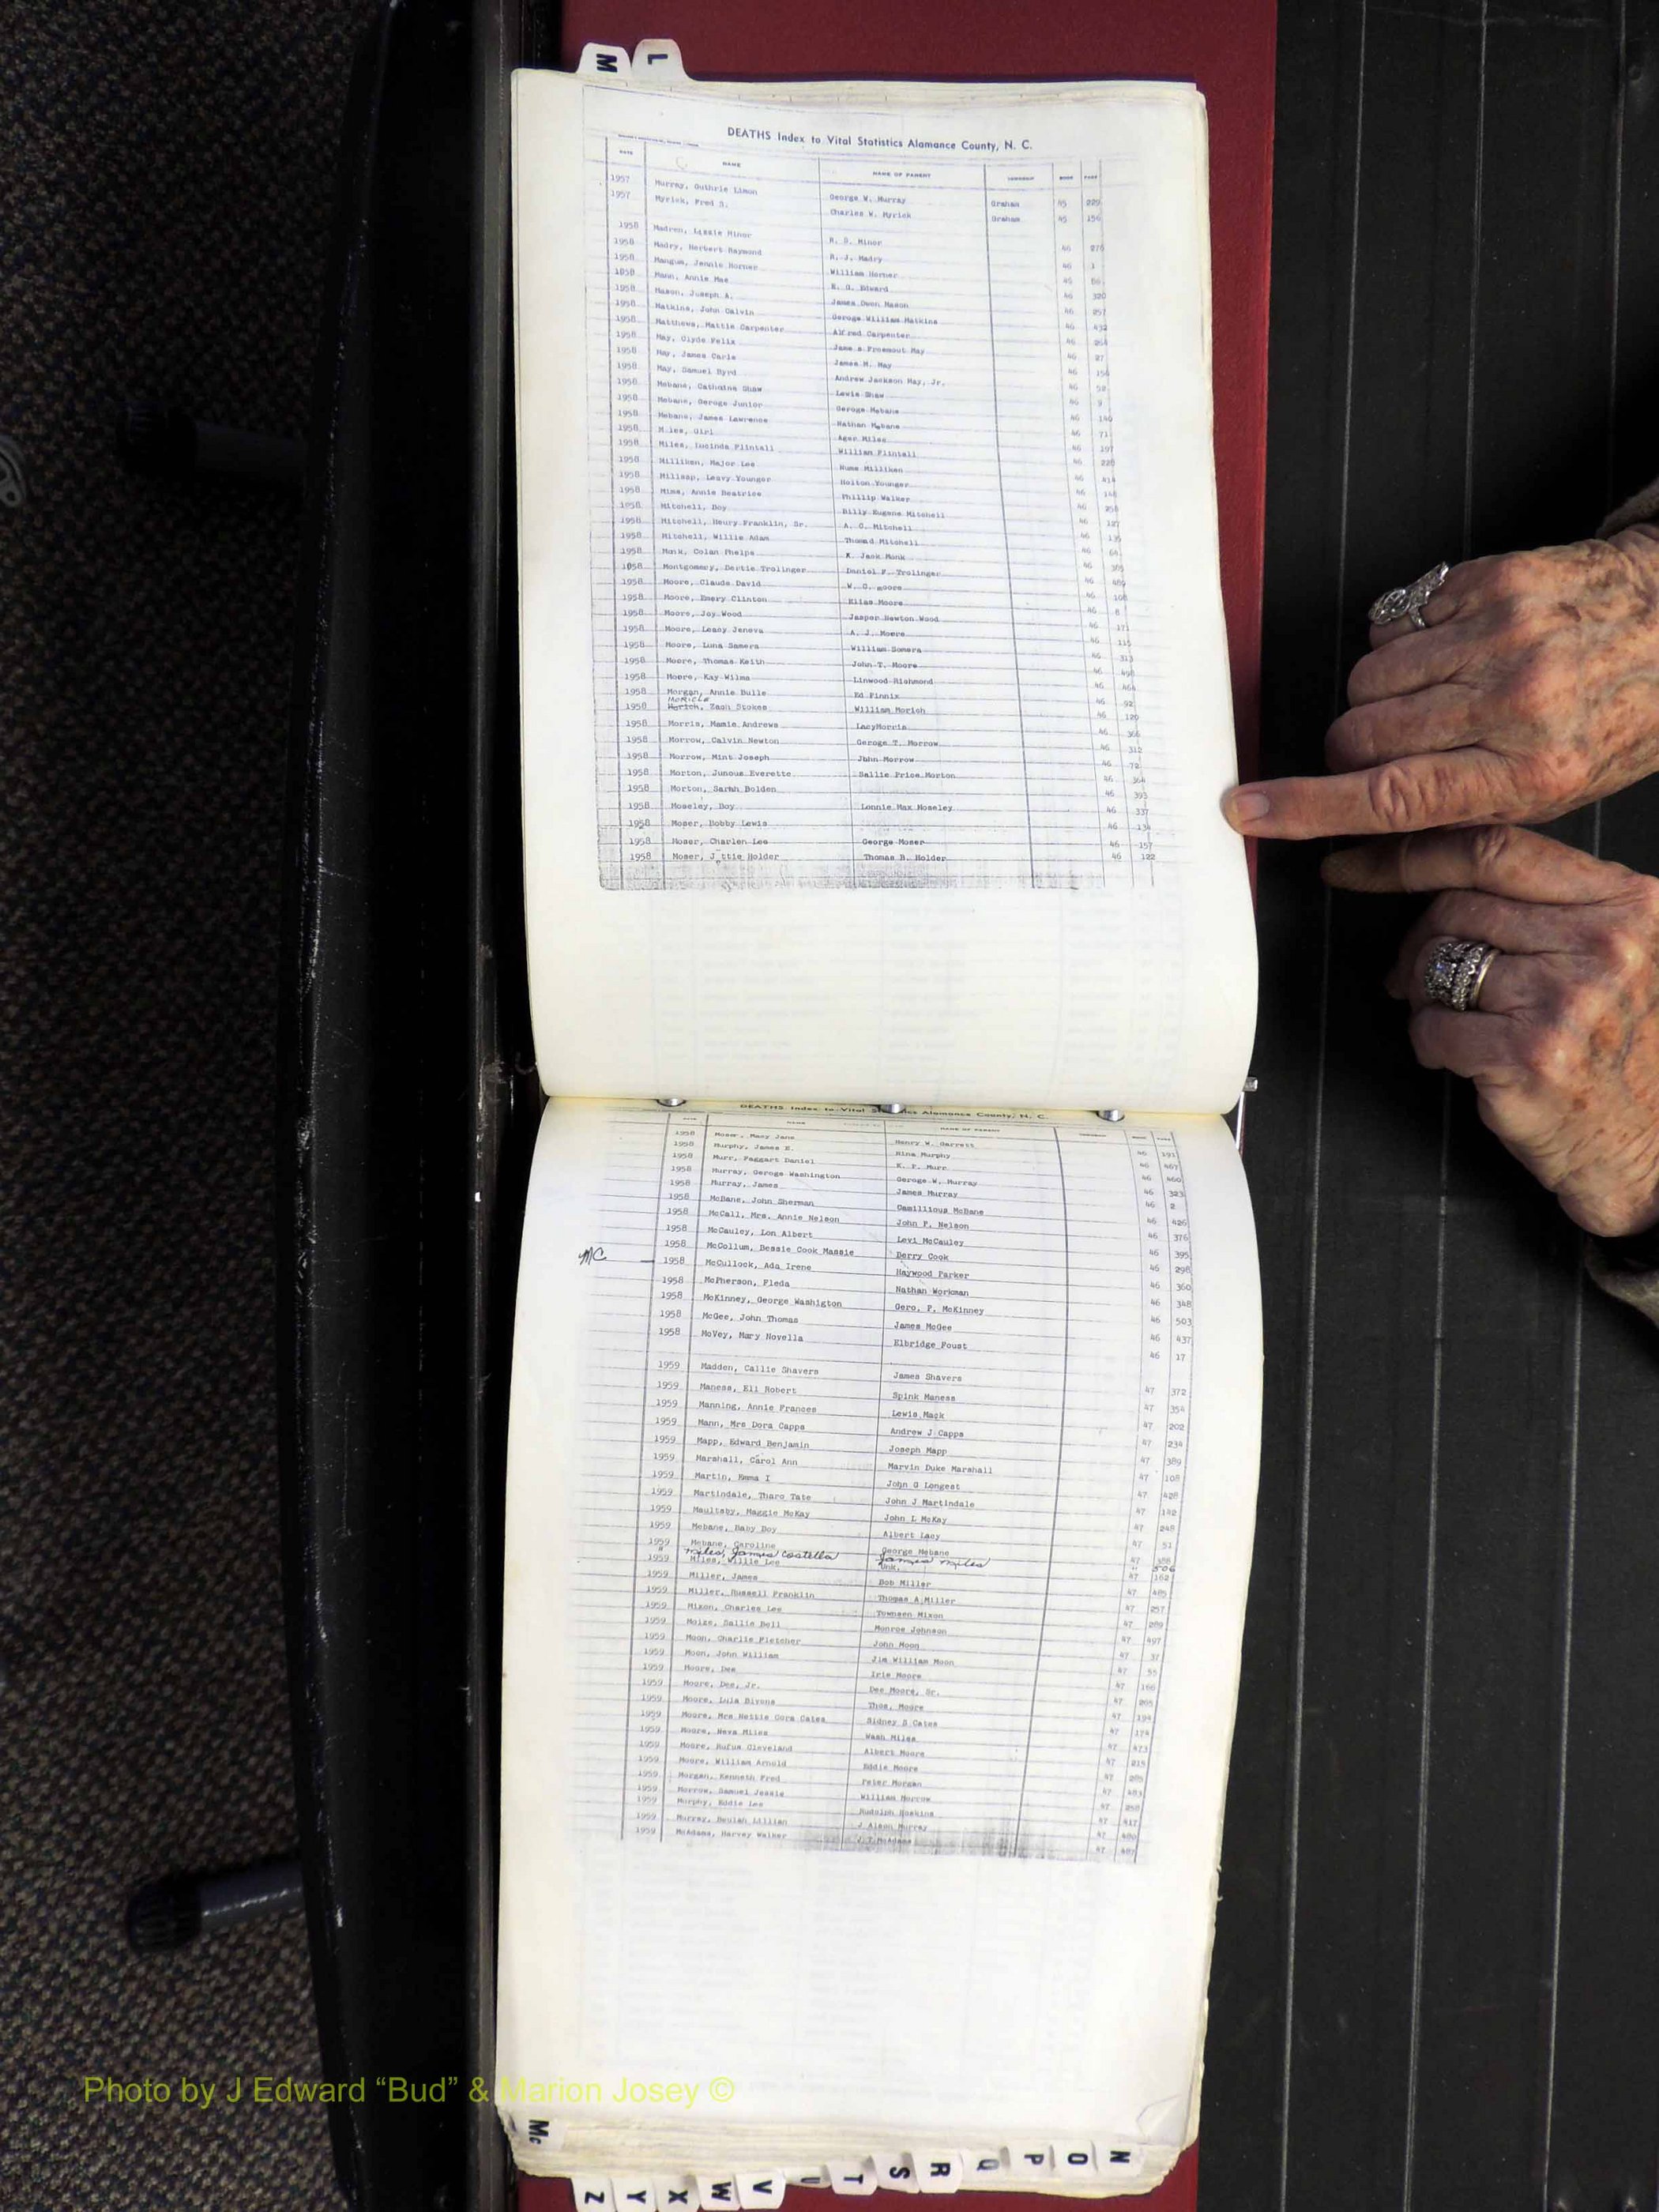 M L
DEATHS Index to Vital Statistics Alamance County, N. C.
DATE NAME NAME OF PARENT TOWNSHIP BOOK PAGE
1957 Murray, Guthrie Limon George W. Murray Graham 45 229
1957 Myrick, Fred S. Charles W. Myrick Graham 45 156
1958 Madren, Lizzie Minor R. S. Minor 46 276
1958 Madry, Herbert Raymond R. J. Madry 46 1
1958 Mangum, Jennie Horner William Horner 46
1958 Mann, Annie Mae E. G. Edward 46 320
1958 Mason, Joseph A. James Owen Mason 46 257
1958 Matkins, John Calvin Geroge William Matkins 46 432
1958 Matthews, Mattie Carpenter Alfred Carpenter 46 264
1958 May, Clyde Felix James Froemout May 46 27
1958 May, James Carle James M. May 46 156
1958 May, Samuel Byrd Andrew Jackson May, Jr. 46 52
1958 Mebane, Catheine Shaw Lewis Shaw 46 9
1958 Mebane, Geroge Junior Geroge Mebane 140
1958 Mebane, James Lawrence Nathan Mebane 46 71
1958 Miles, Girl Ager Miles 46 197
1958 Miles, Lucinda Flintall William Flintall 46 220
1958 Milliken, Major Lee Hume Milliken 46 414
1958 Millsap, Leavy Younger Holton Younger 46 148
1958 Mims, Annie Beatrice Phillip Walker 46 250
1958 Mitchell, Boy Billy Eugene Mitchell 46 127
1958 Mitchell, Heury Franklin, Sr. A. C. Mitchell 46 135
1958 Mitchell, Willie Adam Thomad Mitchell 46 64
1958 Monk, Colan Phelps K. Jack Monk 46 305
1958 Montgomery, Dertie Trolinger Daniel F. Trolinger 46 489
1958 Moore, Claude David W. C. moore 46 108
1958 Moore, Emery Clinton Elias Moore 46 8
1958 Moore, Joy Wood Jasper Newton Wood 46 171
1958 Moore, Leacy Jeneva A. J. Moore 46 115
1958 Moore, Luna Somera William Somera 46 313
1958 Moore, Thomas Keith John T. Moore 46 498
1958 Moore, Kay Wilma Linwood Richmond 46 464
1958 Morgan, Annie Bulle Ed Finnix 46 92
1958 Morich, Zach Stokes William Morich 46 120
1958 Morris, Mamie Andrews LacyMorris 46 366
1958 Morrow, Calvin Newton Geroge T. Morrow 46 312
1958 Morrow, Mint Joseph John Morrow 46 72
1958 Morton, Junous Everette Sallie Price Morton 46 364
1958 Morton, Sarah Bolden 46 393
1958 Moseley, Boy Lonnie Max Moseley 46 337
1958 Moser, Bobby Lewis 46 134
1958 Moser, Charlen Lee George Moser 46 157
1958 Moser, J ttie Holder Thomas B. Holder 46 122
DEATHS Index to Vital Statistics Alamance County, N. C.
DATE NAME NAME OF PARENT TOWNSHIP BOOK PAGE
1958 Moser, Mary Jane Henry W. Garrett 46 191
1958 Murphy, James E. Rina Murphy 46 467
1958 Murr, Paggart Daniel K. P. Murr 46 460
1958 Murray, Geroge Washington Geroge W. Murray 46 323
1958 Murray, James James Murray 46 2
1958 McBane, John Sherman Camillious McBane 46 426
1958 McCall, Mrs. Annie Nelson John P. Nelson 46 376
1958 McCauley, Lon Albert Levi McCauley 46 395
1958 McCollum, Bessie Cook Massie Berry Cook 46 298
MC 1958 McCullock, Ada Irene Haywood Parker 46 360
1958 McPherson, Fleda Nathan Workman 46 348
1958 McKinney, George Washigton Gero. P. McKinney 46 503
1958 McGee, John Thomas James McGee 46 437
1958 McVey, Mary Novella Elbridge Foust 46 17
1959 Madden, Callie Shavers James Shavers 47 372
1959 Maness, Eli Robert Spink Maness 47 354
1959 Manning, Annie Frances Lewis Mack 47 202
1959 Mann, Mrs Dora Capps Andrew J Capps 47 234
1959 Mapp, Edward Benjamin Joseph Mapp 47 389
1959 Marshall, Carol Ann Marvin Duke Marshall 47 108
1959 Martin, Emma I John G Longest 47 428
1959 Martindale, Tharo Tate John J Martindale 47 142
1959 Maultsby, Maggie McKay John L McKay 47 248
1959 Mebane, Baby Boy Albert Lacy 47 51
1959 Mebane, Caroline George Mebane 47 388
" Miles, James Costella James Miles " 506
1959 Miles, Willie Lee Unk. 47 162
1959 Miller, James Bob Miller 47 485
1959 Miller, Russell Franklin Thomas A Miller 47 257
1959 Mixon, Charles Lee Townsen Mixon 47 289
1959 Moize, Sallie Bell Monroe Johnson 47 497
1959 Moon, Charlie Fletcher John Moon 47 37
1959 Moon, John William Jim William Moon 47 55
1959 Moore, Dee Irie Moore 47 166
1959 Moore, Dee, Jr. Dee Moore, Sr. 47 265
1959 Moore, Lula Bivens Thos. Moore 47 194
1959 Moore, Mrs Nettie Cora Cates Sidney S Cates 47 174
1959 Moore, Neva Miles Wash Miles 47 473
1959 Moore, Rufus Cleveland Albert Moore 47 215
1959 Moore, William Arnold Eddie Moore 47 285
1959 Morgan, Kenneth Fred Peter Morgan 47 483
1959 Morrow, Samuel Jessie William Morrow 47 258
1959 Murphy, Eddie Lee Rudolph Hoskins 47 417
1959 Murray, Beulah Lillian J Alson Murray 47 480
1959 McAdams, Harvey Walker J. T. McAdams 47 487
Photo by J Edward “Bud” & Marion Josey ©
Mc N O P Q R S T U V W X Y Z